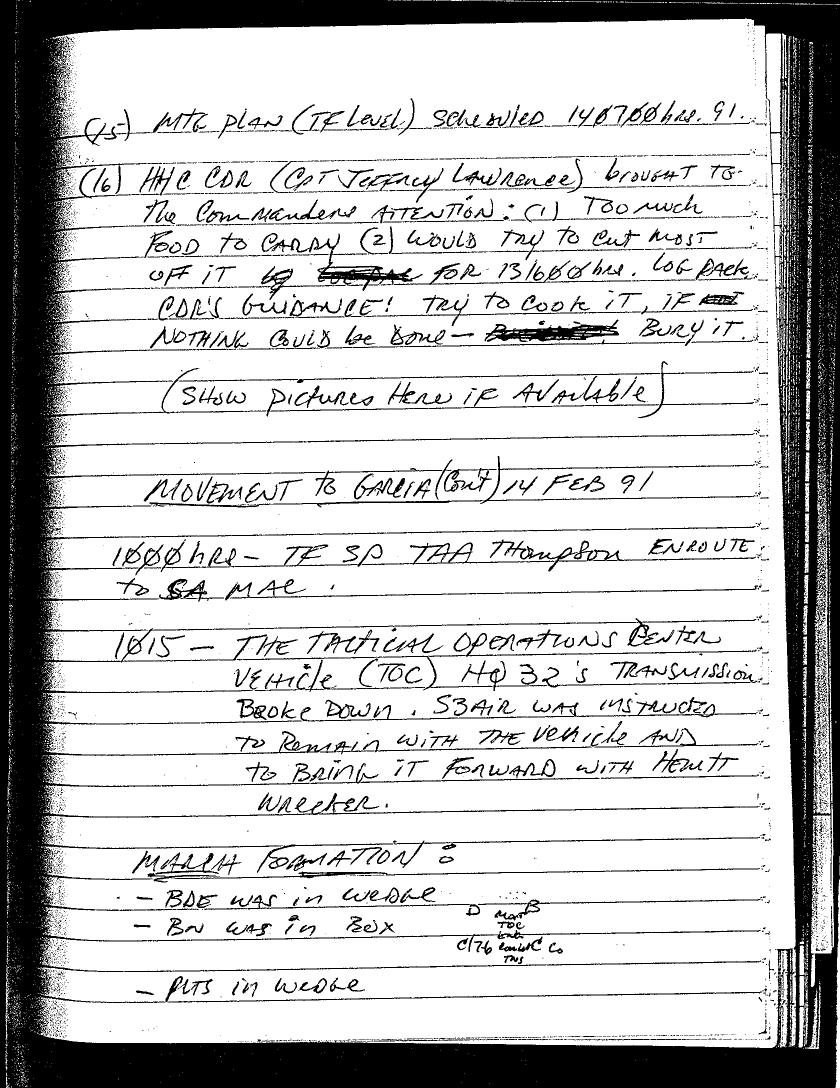 (15) MTG PLAN (TF LEVEL) SCHEDULED 140700hrs. 91.
(16) HHC CDR (CPT JEFFREY LAWRENCE) BROUGHT TO
The COMMANDERS ATTENTION: (1) TOO MUCH
FOOD TO CARRY (2) WOULD TRY TO CUT MOST
OFF IT FOR 131600hrs. LOG PACK
CDR'S GUIDANCE! TRY TO COOK IT, IF
NOTHING COULD be DONE — BURY IT.
(SHOW PICTURES HERE IF AVAILABLE)
MOVEMENT TO GARCIA (CON'T) 14 FEB 91
1000hrs — TF SP TAA THOMPSON ENROUTE
to SA MAC.
1015 — THE TACTICAL OPERATIONS CENTER
VEHICLE (TOC) HQ 32'S TRANSMISSION
BROKE DOWN. S3AIR WAS INSTRUCTED
to REMAIN WITH THE VEHICLE AND
to BRING IT FORWARD WITH HEMTT
WRECKER.
MARCH FORMATION:
- BDE WAS IN WEDGE
- BN WAS IN BOX
D B
TOC
C/76 C Co
TNS
- PLTS IN WEDGE